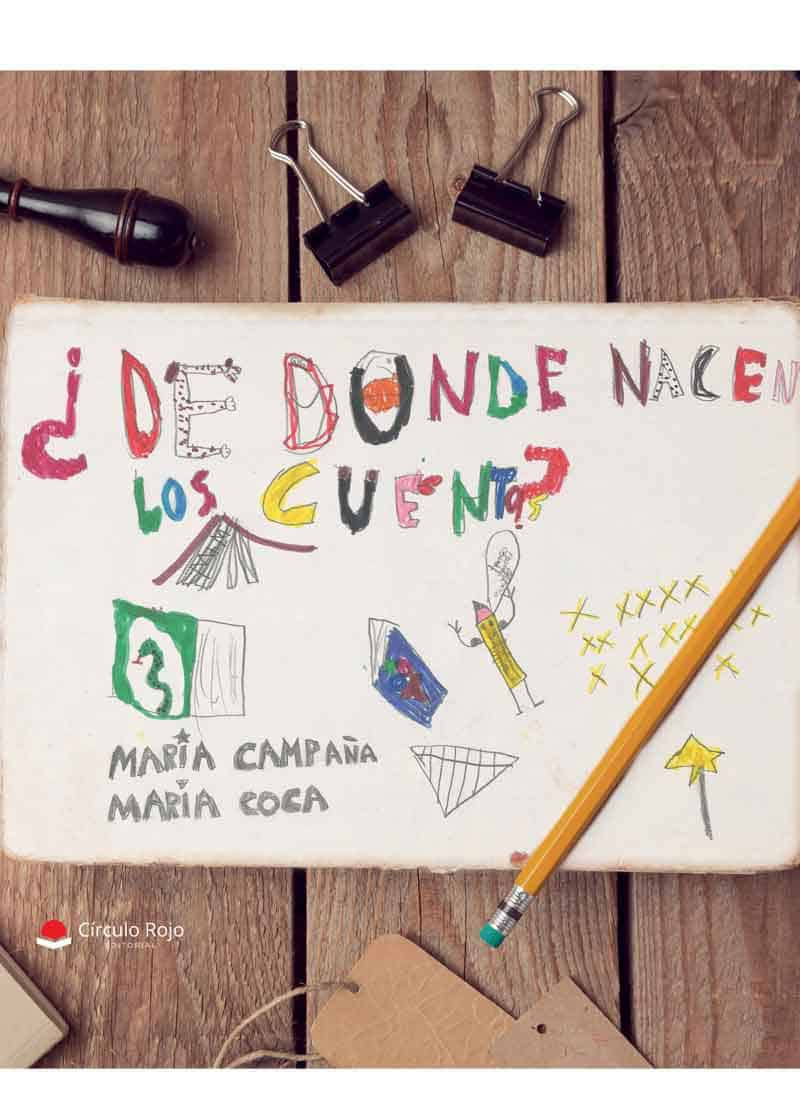 ¿DE DONDE NACEN
LOS CUENTOS?
MARIA CAMPAÑA
MARIA COCA
Círculo Rojo
EDITORIAL